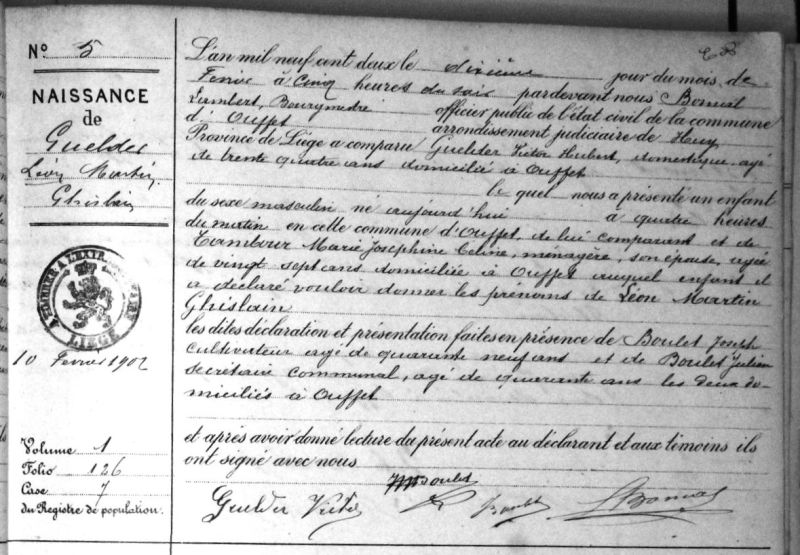 N° 5
NAISSANCE
de
Guelder
Léon Martin
Ghislain
10 Fevrier 1902
LIÈGE
Volume 1
Folio 126
Case 7
du Registre de population.
L'an mil neuf cent deux le dixième jour du mois de
Fevrier à Cinq heures du soir pardevant nous Bonmal
Lambert, Bourgmestre officier public de l'état civil de la commune
d' Ouffet arrondissement judiciaire de Huy
Province de Liége a comparu Guelder Victor Hubert, domestique, agé
de trente quatre ans domicilié à Ouffet
le quel nous a présenté un enfant
du sexe masculin né aujourd'hui à quatre heures
du matin en cette commune d'Ouffet, de lui comparant et de
Tambour Marie Josephine Celine, ménagère, son épouse, agée
de vingt sept ans domiciliée à Ouffet auquel enfant il
a déclaré vouloir donner les prénoms de Léon Martin
Ghislain
les dites déclaration et présentation faites en présence de Boulet Joseph
cultivateur agé de quarante neuf ans et de Boulet Julien
secrétaire communal, agé de quarante ans les deux do-
miciliés à Ouffet
et après avoir donné lecture du présent acte au déclarant et aux témoins ils
ont signé avec nous
Boulet
Guelder Victor Boulet LBonmal